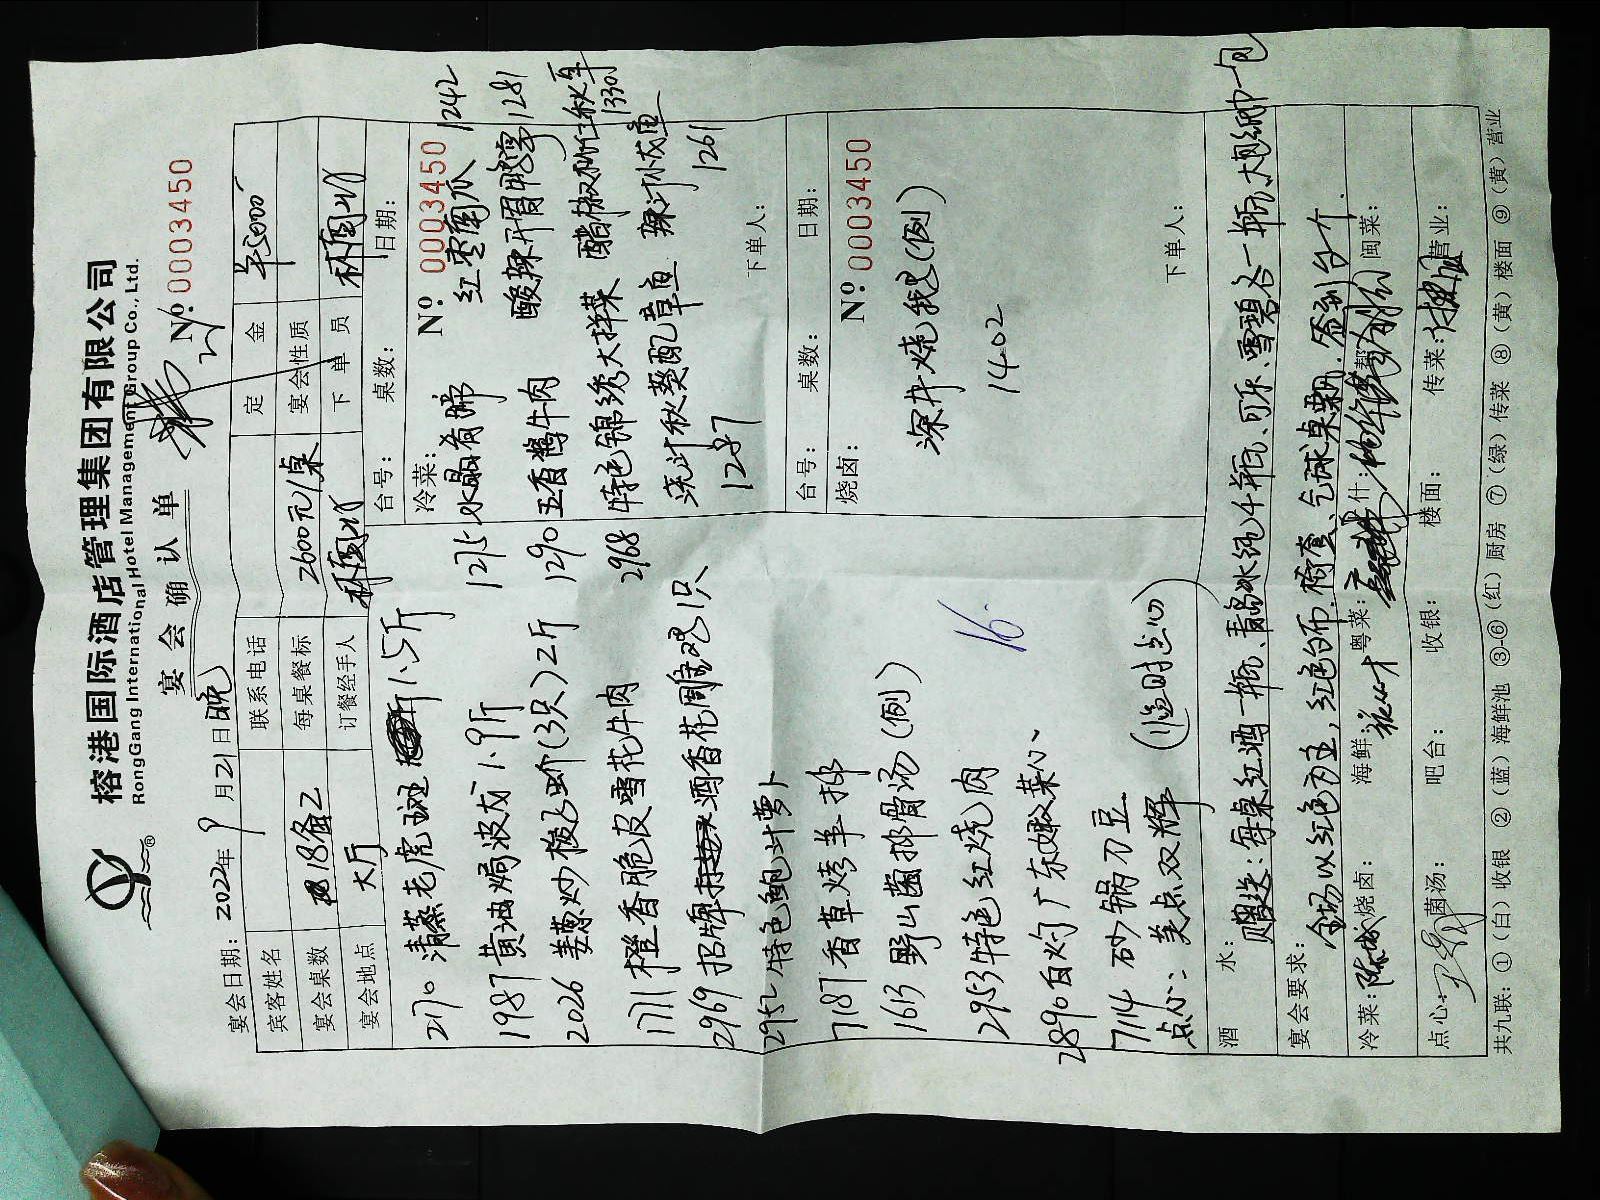 榕港国际酒店管理集团有限公司
RongGang International Hotel Management Group Co., Ltd.
宴会确认单
№ 0003450
宴会日期：2022年 9 月21日晚
宾客姓名 联系电话 定金 ¥5000
宴会桌数 18备2 每桌餐标 2600元/桌 宴会性质
宴会地点 大厅 订餐经手人 下单员
2170 清蒸老虎斑 1.5斤
1987 黄油焗波龙 1.9斤
2026 姜葱炒梭子蚧(3只)2斤
1771 橙香脆皮雪花牛肉
2969 招牌酒香花雕鸡1只
2952 特色鲍汁萝卜
7187 香草烤羊排
1613 野山菌排骨汤(例)
2953 特色红烧肉
2890 白灼广东嫩菜心
7114 砂锅刀豆
点心：美点双辉 (临时点心)
16.
台号： 桌数： 日期：
冷菜： № 0003450
1275 水晶肴蹄 红枣南瓜 1242
1290 五香酱牛肉 酸辣 1281
2968 特色锦绣大拌菜 醋椒桃仁秋耳 1330
浇汁秋葵配章鱼 1287 辣汁 1261
下单人：
台号： 桌数： 日期：
烧卤： № 0003450
深井烧鹅(例)
1402
下单人：
酒水： 赠送：每桌红酒一瓶、青岛冰纯4瓶、可乐、雪碧各一瓶、大包纸巾一包
宴会要求： 全场以红色为主，红色台布、椅套、气球桌飘、签到台1个.
冷菜： 烧卤： 海鲜： 粤菜： 帮什： 闽菜：
点心： 菌汤： 吧台： 收银： 楼面： 传菜： 营业：
共九联：①（白）收银 ②（蓝）海鲜池 ③-⑥（红）厨房 ⑦（绿）传菜 ⑧（黄）楼面 ⑨（黄）营业